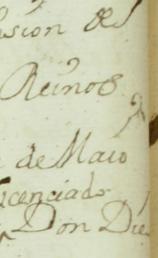 sion de
Reinos
de Maio
icenciado
Don Die